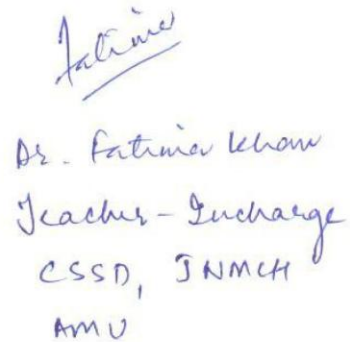 Fatima
Dr. Fatima Khan
Teacher-Incharge
CSSD, JNMCH
AMU